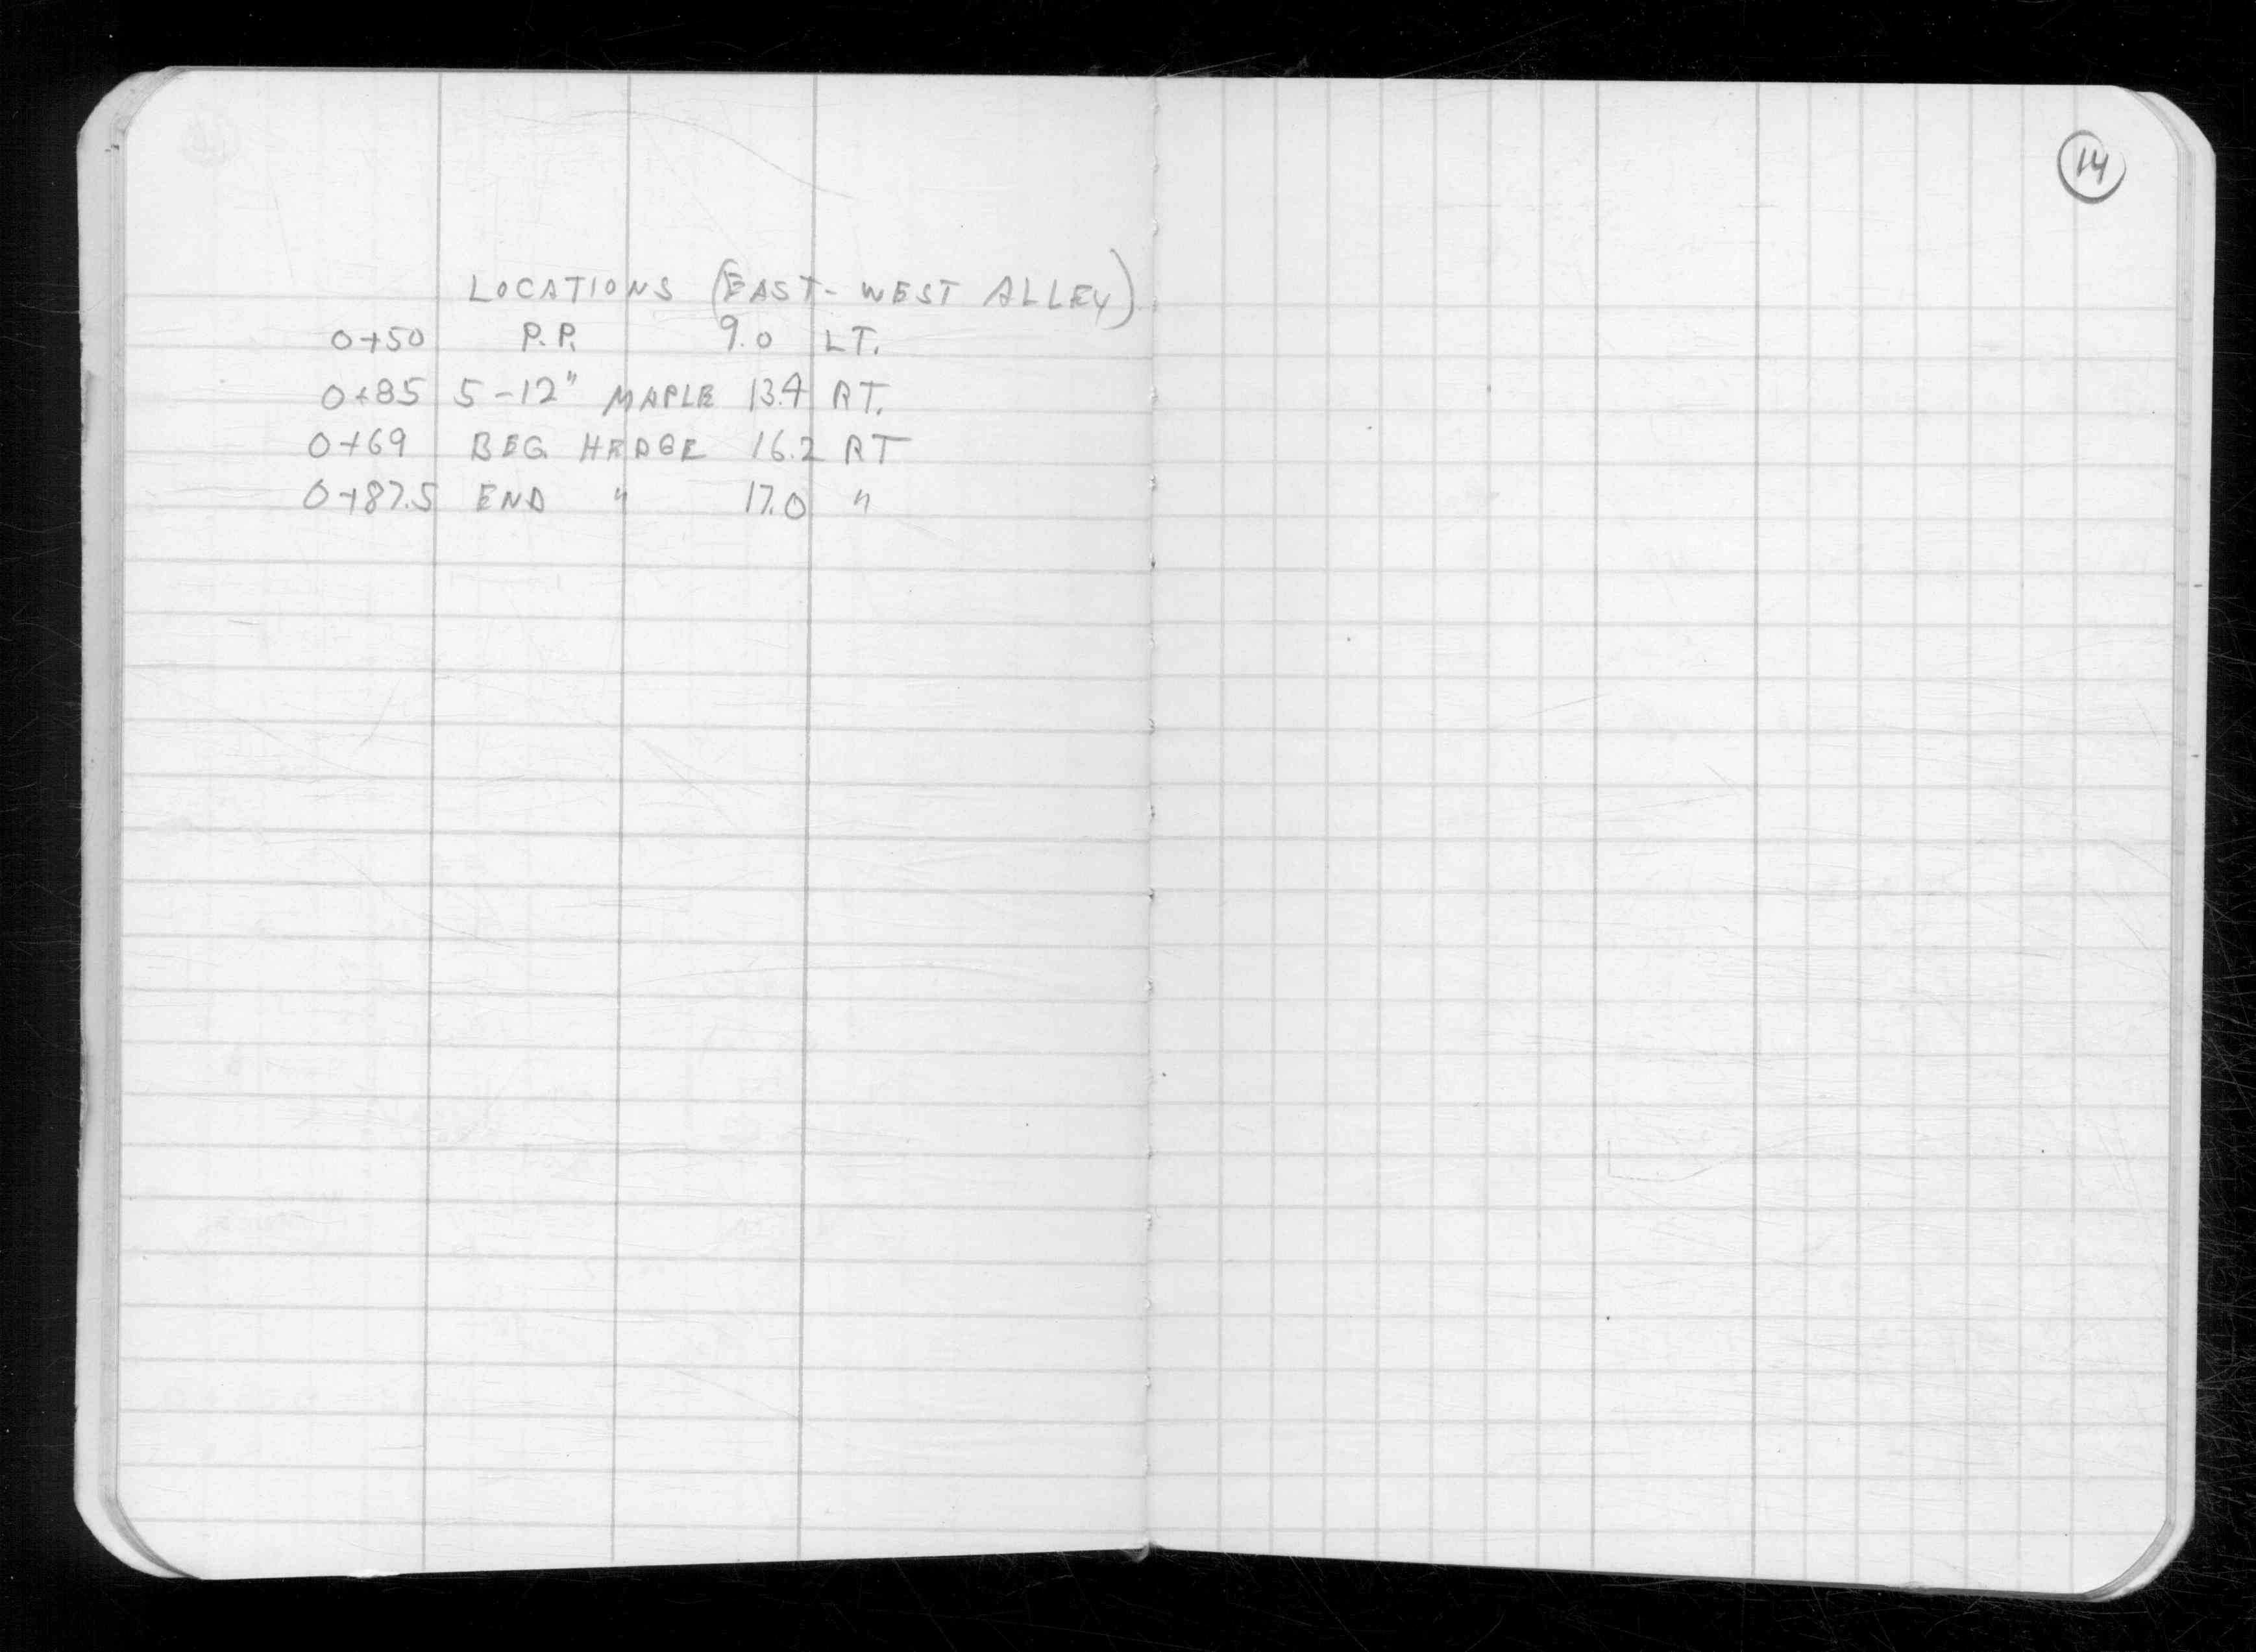 14
LOCATIONS (EAST-WEST ALLEY)
0+50 P.P. 9.0 LT.
0+85 5-12" MAPLE 13.4 RT.
0+69 BEG. HEDGE 16.2 RT
0+87.5 END " 17.0 "